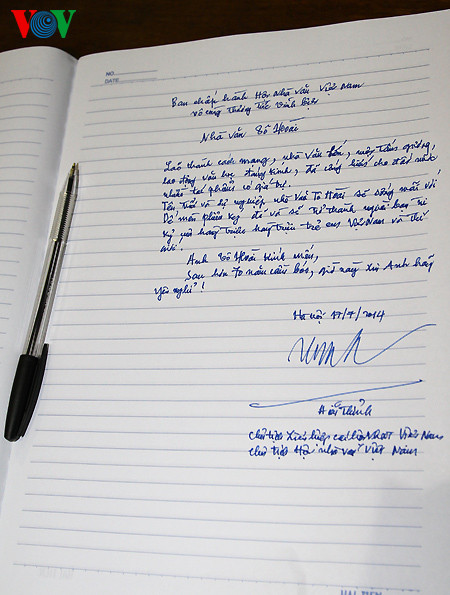 VOV
NO.
DATE
Ban chấp hành Hội Nhà văn Việt Nam
vô cùng thương tiếc vĩnh biệt
Nhà văn Tô Hoài
Lão thành cách mạng, nhà văn lớn, một tấm gương,
lao động văn học đáng kính, đã cống hiến cho đất nước
nhiều tác phẩm có giá trị.
Tên tuổi và sự nghiệp nhà văn Tô Hoài sẽ sống mãi với
Dế mèn phiêu lưu ký đã và sẽ trở thành người bạn tri
kỷ của hàng triệu hàng triệu trẻ em Việt Nam và Thế
giới!
Anh Tô Hoài kính mến,
Sau hơn 70 năm cầm bút, giờ này xin Anh hãy
yên nghỉ!
Hà nội 17/7/2014
Hữu Thỉnh
Chủ tịch Liên hiệp các Hội VHNT Việt Nam
Chủ tịch Hội nhà văn Việt Nam
HẢI TIẾN